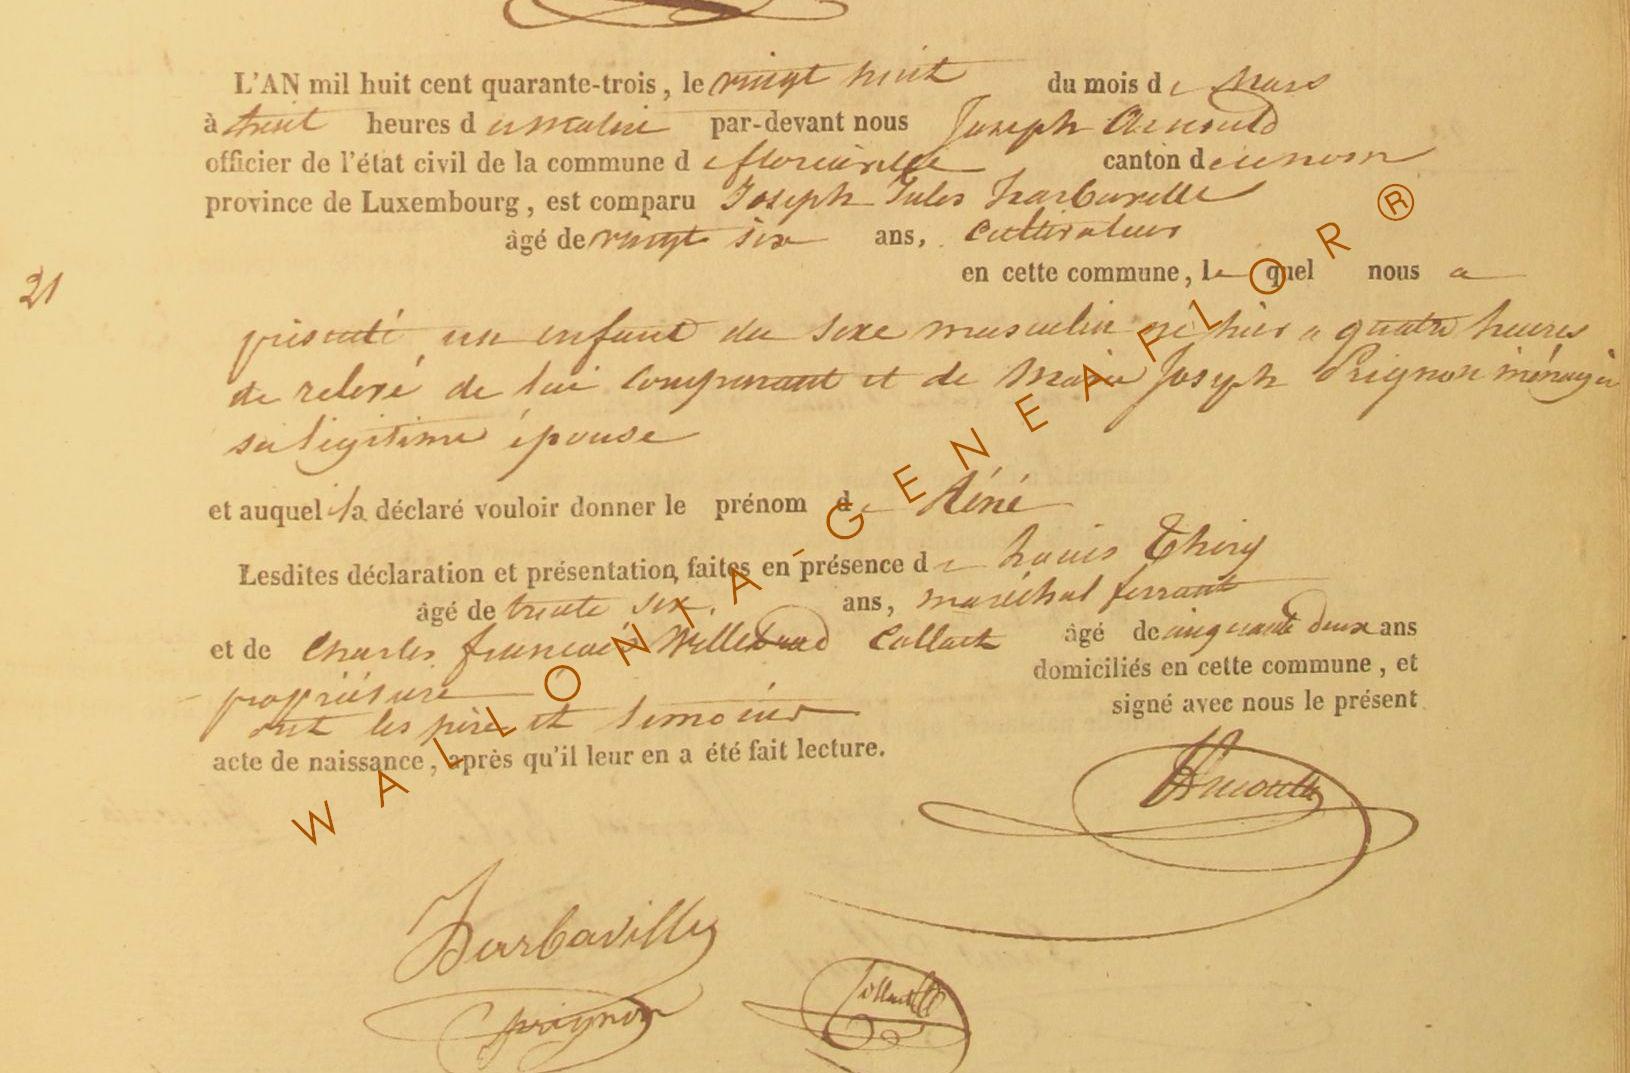 L'AN mil huit cent quarante-trois, le vingt huit du mois de Mars
à huit heures du matin par-devant nous Joseph Arnould
officier de l'état civil de la commune de florenville canton de ce nom
province de Luxembourg, est comparu Joseph Jules
âgé de vingt six ans, Cultivateur
en cette commune, le quel nous a
21
présenté un enfant du sexe masculin né hier a quatre heures
de relevé de lui Comparant et de Marie Joseph Prignon ménagère
sa légitime épouse
et auquel il a déclaré vouloir donner le prénom de Réné
Lesdites déclaration et présentation faites en présence de Louis Thiry
âgé de trente six. ans, maréchal ferrant
et de Charles françois Willebrord Collard âgé de cinquante deux ans
propriétaire domiciliés en cette commune, et
ont les père et témoins signé avec nous le présent
acte de naissance, après qu'il leur en a été fait lecture.
Arnould
Prignon
WALLONIA-GENEAFLOR®